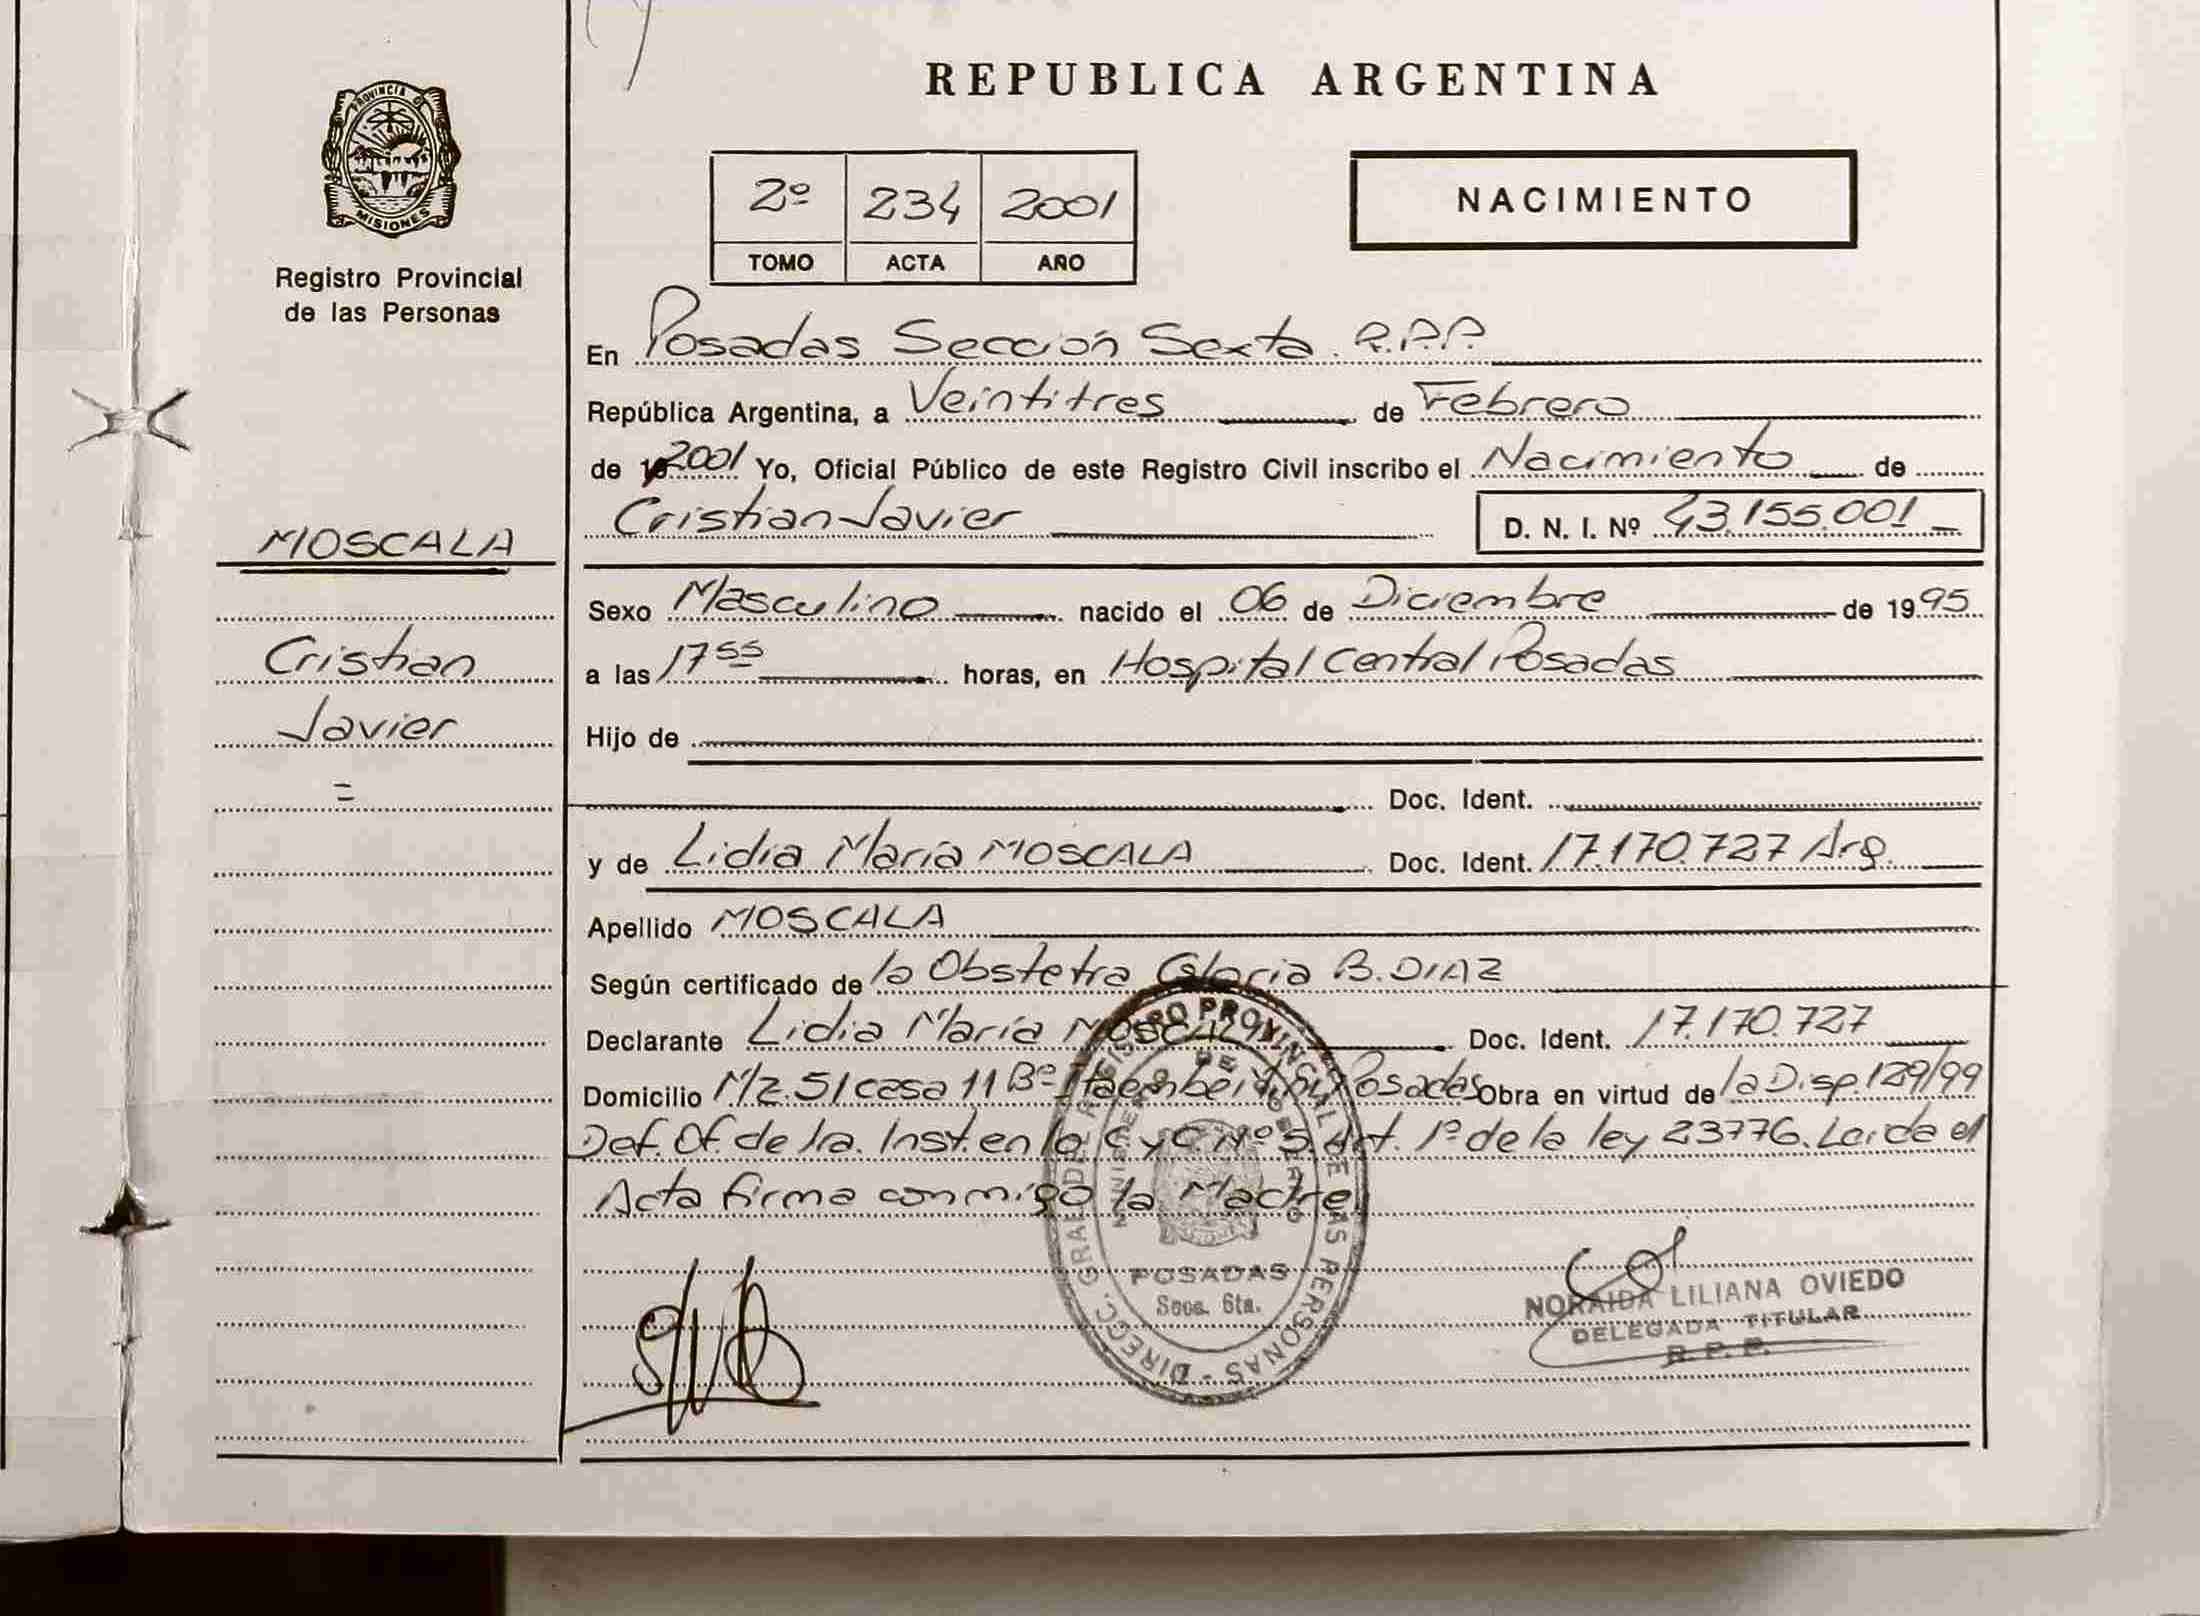 REPUBLICA ARGENTINA
PROVINCIA D
MISIONES
Registro Provincial
de las Personas
2º 234 2001
TOMO ACTA AÑO
NACIMIENTO
En Posadas Sección Sexta. R.P.P.
República Argentina, a Veintitres de Febrero
de 2001 Yo, Oficial Público de este Registro Civil inscribo el Nacimiento de
Cristian Javier D. N. I. Nº 43.155.001
MOSCALA
Cristian
Javier
=
Sexo Masculino nacido el 06 de Diciembre de 1995
a las 17 55 horas, en Hospital Central Posadas
Hijo de
Doc. Ident.
y de Lidia María MOSCALA Doc. Ident. 17.170.727 Arg.
Apellido MOSCALA
Según certificado de la Obstetra Gloria B. DIAZ
Declarante Lidia María MOSCALA Doc. Ident. 17.170.727
Domicilio Mz. 51 casa 11 Bº Itaembé Posadas Obra en virtud de la Disp. 129/99
Def. Of. de 1ra. Inst. en lo C y C Nº 5. Art. 1º de la ley 23776. Leída el
Acta firma conmigo la Madre
DIRECC. GRAL. DEL REGISTRO PROVINCIAL DE LAS PERSONAS
MINISTERIO DE GOBIERNO
POSADAS
Secc. 6ta.
NORAIDA LILIANA OVIEDO
DELEGADA TITULAR
R. P. P.